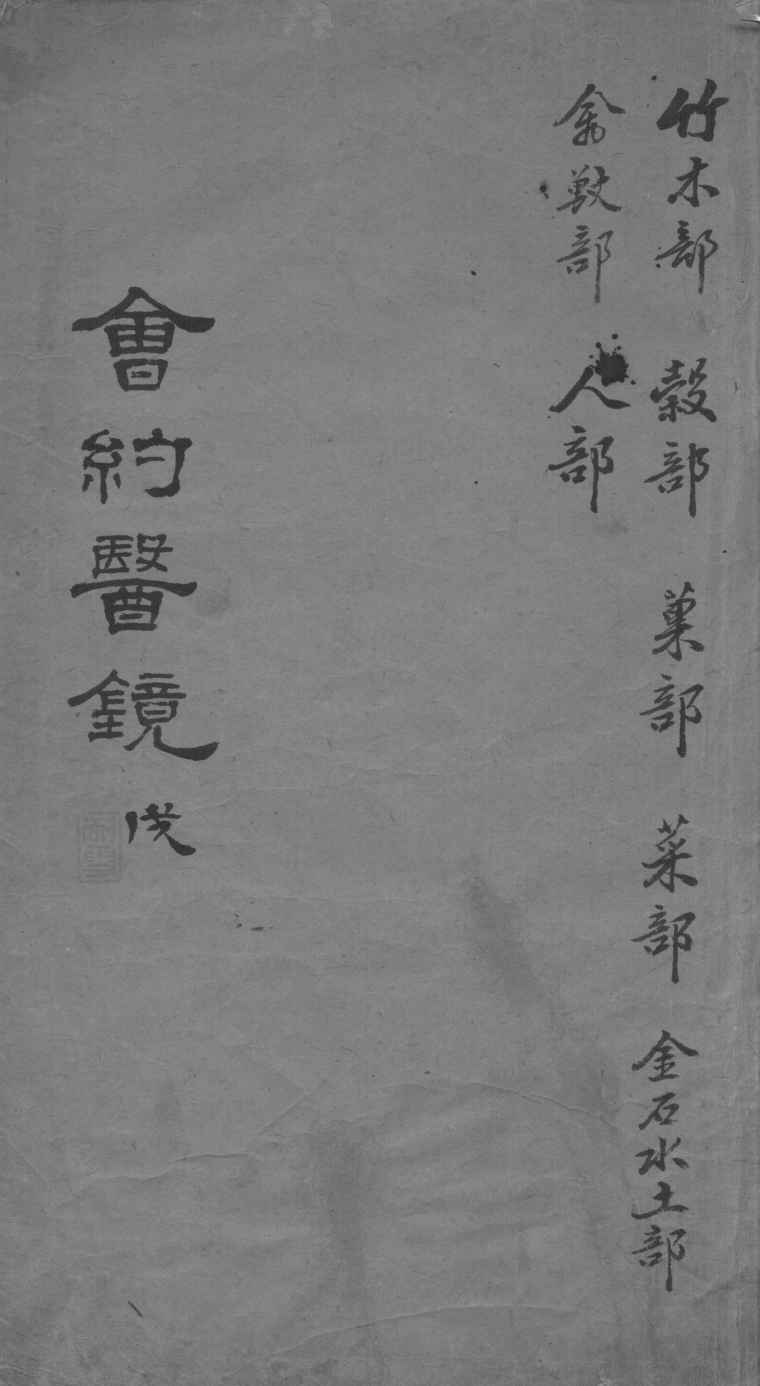 竹木部 穀部 菓部 菜部 金石水土部
禽獸部 人部
會約醫鏡